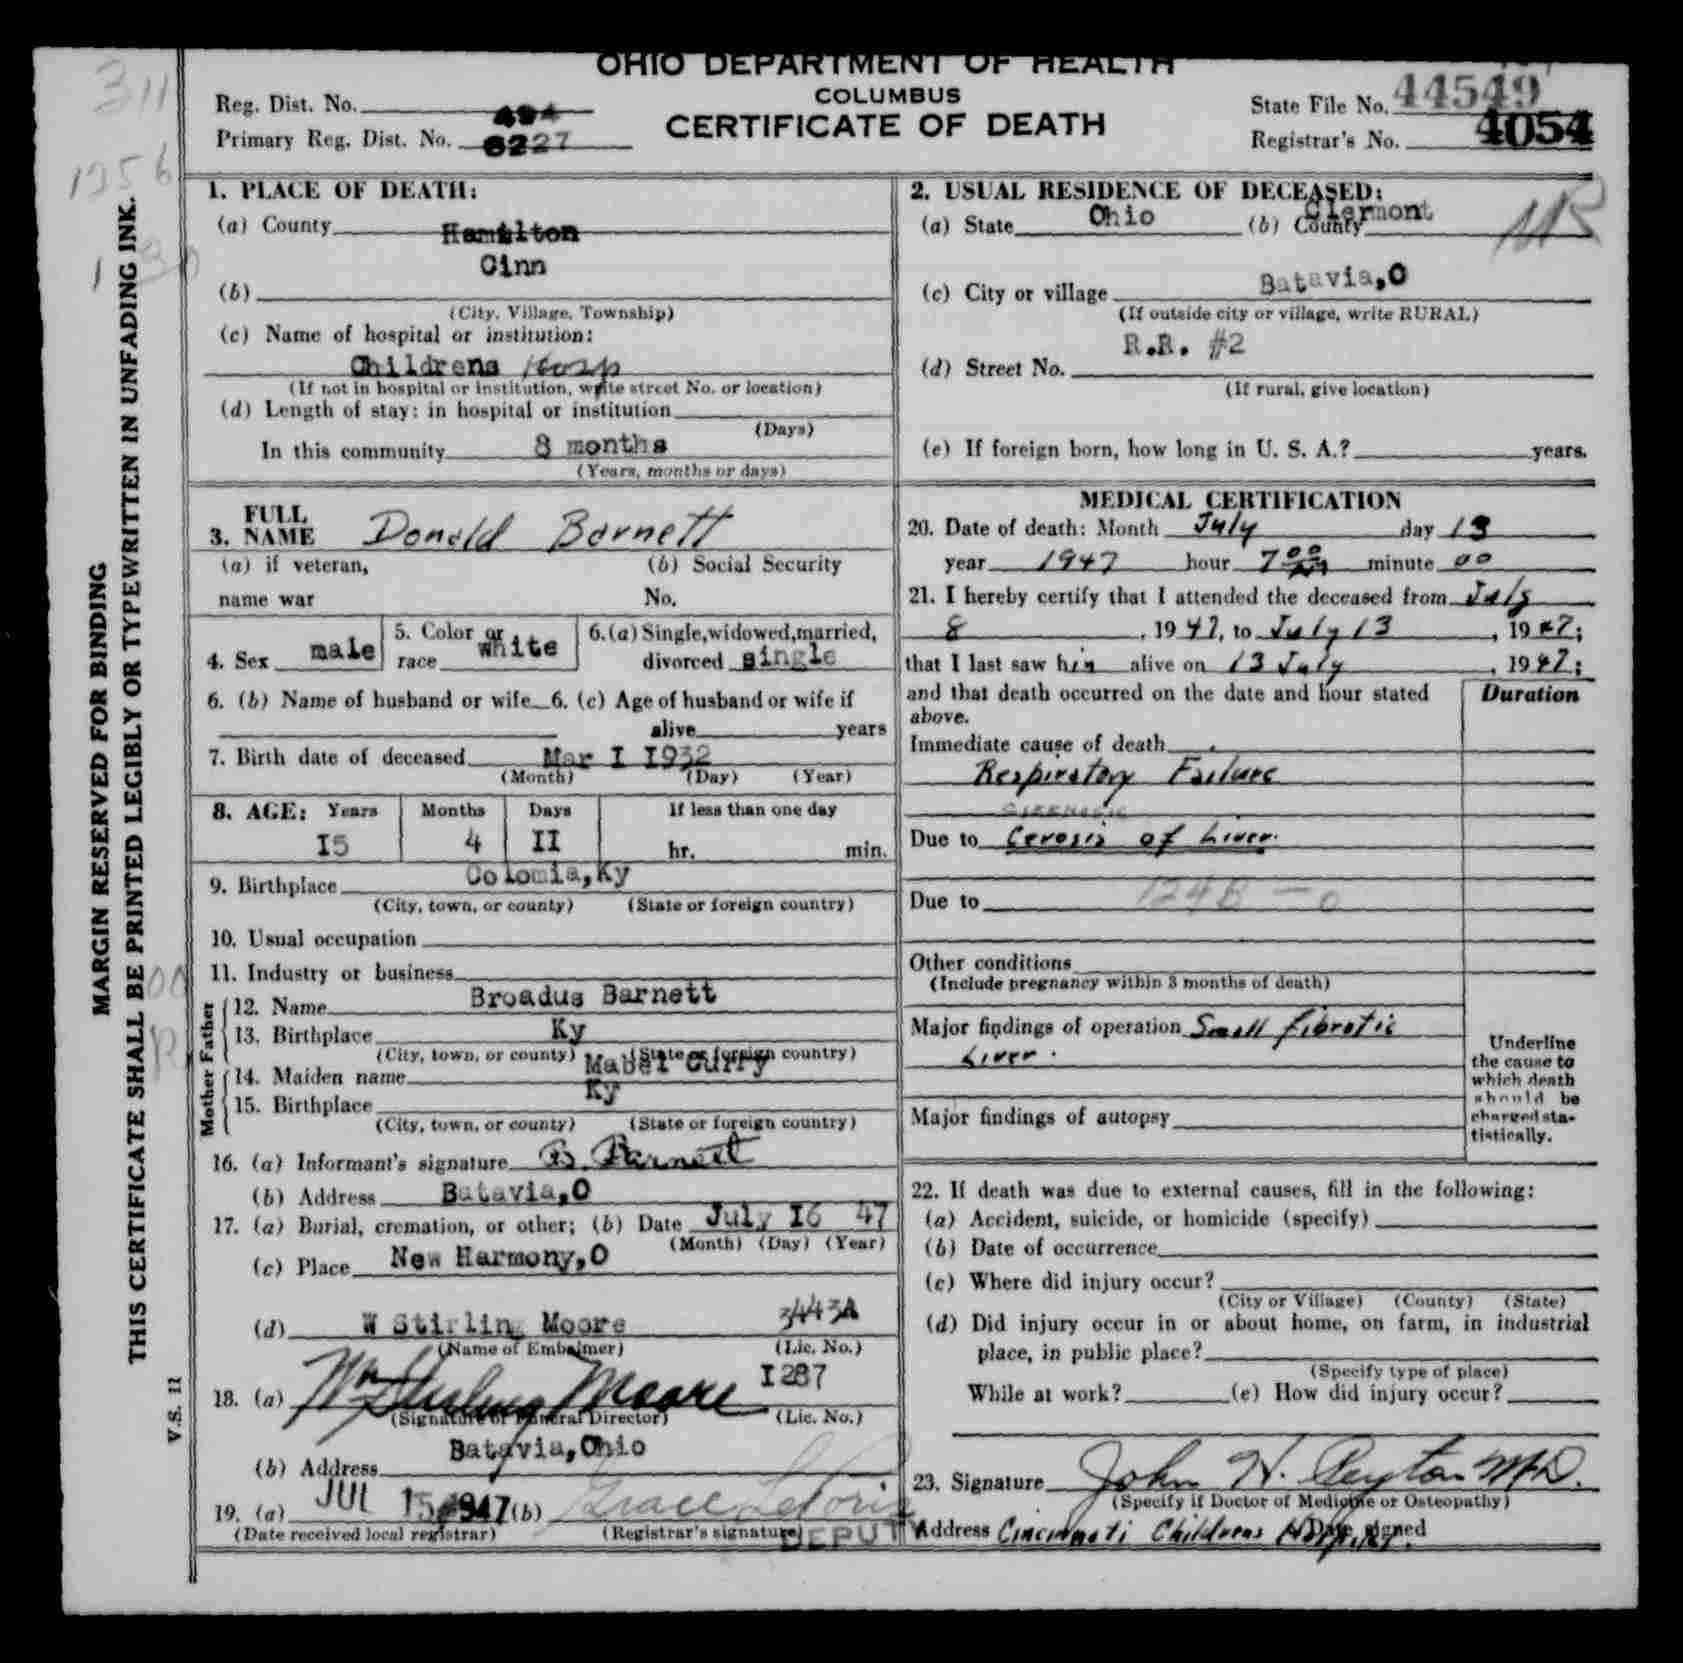 OHIO DEPARTMENT OF HEALTH
COLUMBUS
CERTIFICATE OF DEATH
Reg. Dist. No. 494
Primary Reg. Dist. No. 8227
State File No. 44549
Registrar's No. 4054
311
1256
MARGIN RESERVED FOR BINDING
THIS CERTIFICATE SHALL BE PRINTED LEGIBLY OR TYPEWRITTEN IN UNFADING INK.
V.S. 11
1. PLACE OF DEATH:
(a) County Hamilton
Cinn
(b)
(City, Village, Township)
(c) Name of hospital or institution:
Childrens Hosp
(If not in hospital or institution, write street No. or location)
(d) Length of stay: in hospital or institution
(Days)
In this community 8 months
(Years, months or days)
2. USUAL RESIDENCE OF DECEASED:
(a) State Ohio (b) County Clermont
(c) City or village Batavia,O
(If outside city or village, write RURAL)
R.R. #2
(d) Street No.
(If rural, give location)
(e) If foreign born, how long in U. S. A.? years.
3. FULL NAME Donald Barnett
(a) if veteran, name war
(b) Social Security No.
4. Sex male
5. Color or race white
6.(a) Single,widowed,married, divorced single
6. (b) Name of husband or wife 6. (c) Age of husband or wife if
alive years
7. Birth date of deceased Mar I I932
(Month) (Day) (Year)
8. AGE: Years Months Days If less than one day
I5 4 II hr. min.
9. Birthplace Colomia,Ky
(City, town, or county) (State or foreign country)
10. Usual occupation
11. Industry or business
Father
12. Name Broadus Barnett
13. Birthplace Ky
(City, town, or county) (State or foreign country)
Mother
14. Maiden name Mabel Curry
15. Birthplace Ky
(City, town, or county) (State or foreign country)
16. (a) Informant's signature B. Barnett
(b) Address Batavia,O
17. (a) Burial, cremation, or other; (b) Date July I6 47
(Month) (Day) (Year)
(c) Place New Harmony,O
(d) W Stirling Moore 3443A
(Name of Embalmer) (Lic. No.)
18. (a) Wm Stirling Moore I287
(Signature of Funeral Director) (Lic. No.)
Batavia,Ohio
(b) Address
19. (a) JUL 15 1947 (b) Grace
(Date received local registrar) (Registrar's signature)
DEPUTY
MEDICAL CERTIFICATION
20. Date of death: Month July day 13
year 1947 hour 7 00 minute 00
21. I hereby certify that I attended the deceased from July
8, 1947, to July 13, 1947;
that I last saw him alive on 13 July, 1947;
and that death occurred on the date and hour stated above.
Duration
Immediate cause of death
Respiratory Failure
Due to Cerosis of Liver.
Due to 124B - 0
Other conditions
(Include pregnancy within 3 months of death)
Major findings of operation Small fibrotic
Liver.
Major findings of autopsy
Underline
the cause to
which death
should be
charged sta-
tistically.
22. If death was due to external causes, fill in the following:
(a) Accident, suicide, or homicide (specify)
(b) Date of occurrence
(c) Where did injury occur?
(City or Village) (County) (State)
(d) Did injury occur in or about home, on farm, in industrial
place, in public place?
(Specify type of place)
While at work? (e) How did injury occur?
23. Signature John H. Peyton M.D.
(Specify if Doctor of Medicine or Osteopathy)
Address Cincinnati Childrens Hospital. Date signed